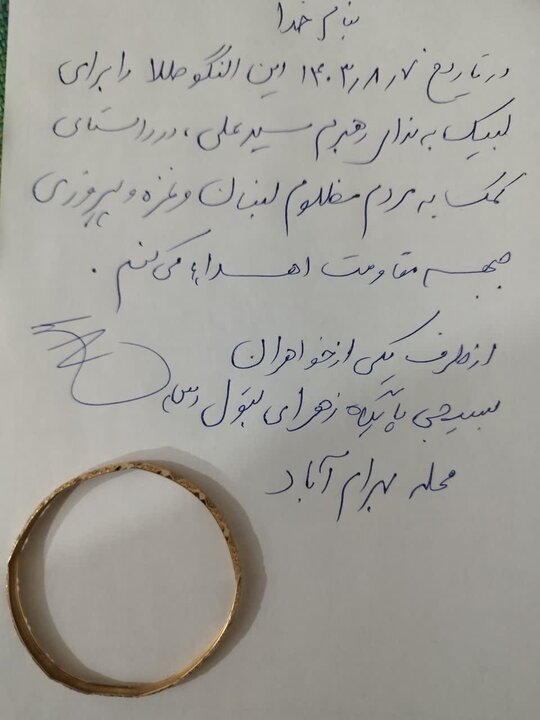 بنام خدا
در تاریخ ۱۴۰۳٫۸٫۷ این النگو طلا را برای
لبیک به ندای رهبرم سید علی، در راستای
کمک به مردم مظلوم لبنان و غزه و پیروزی
جبهه مقاومت اهداء می کنم .
از طرف یکی از خواهران
بسیجی پایگاه زهرای بتول (س)
محله بهرام آباد